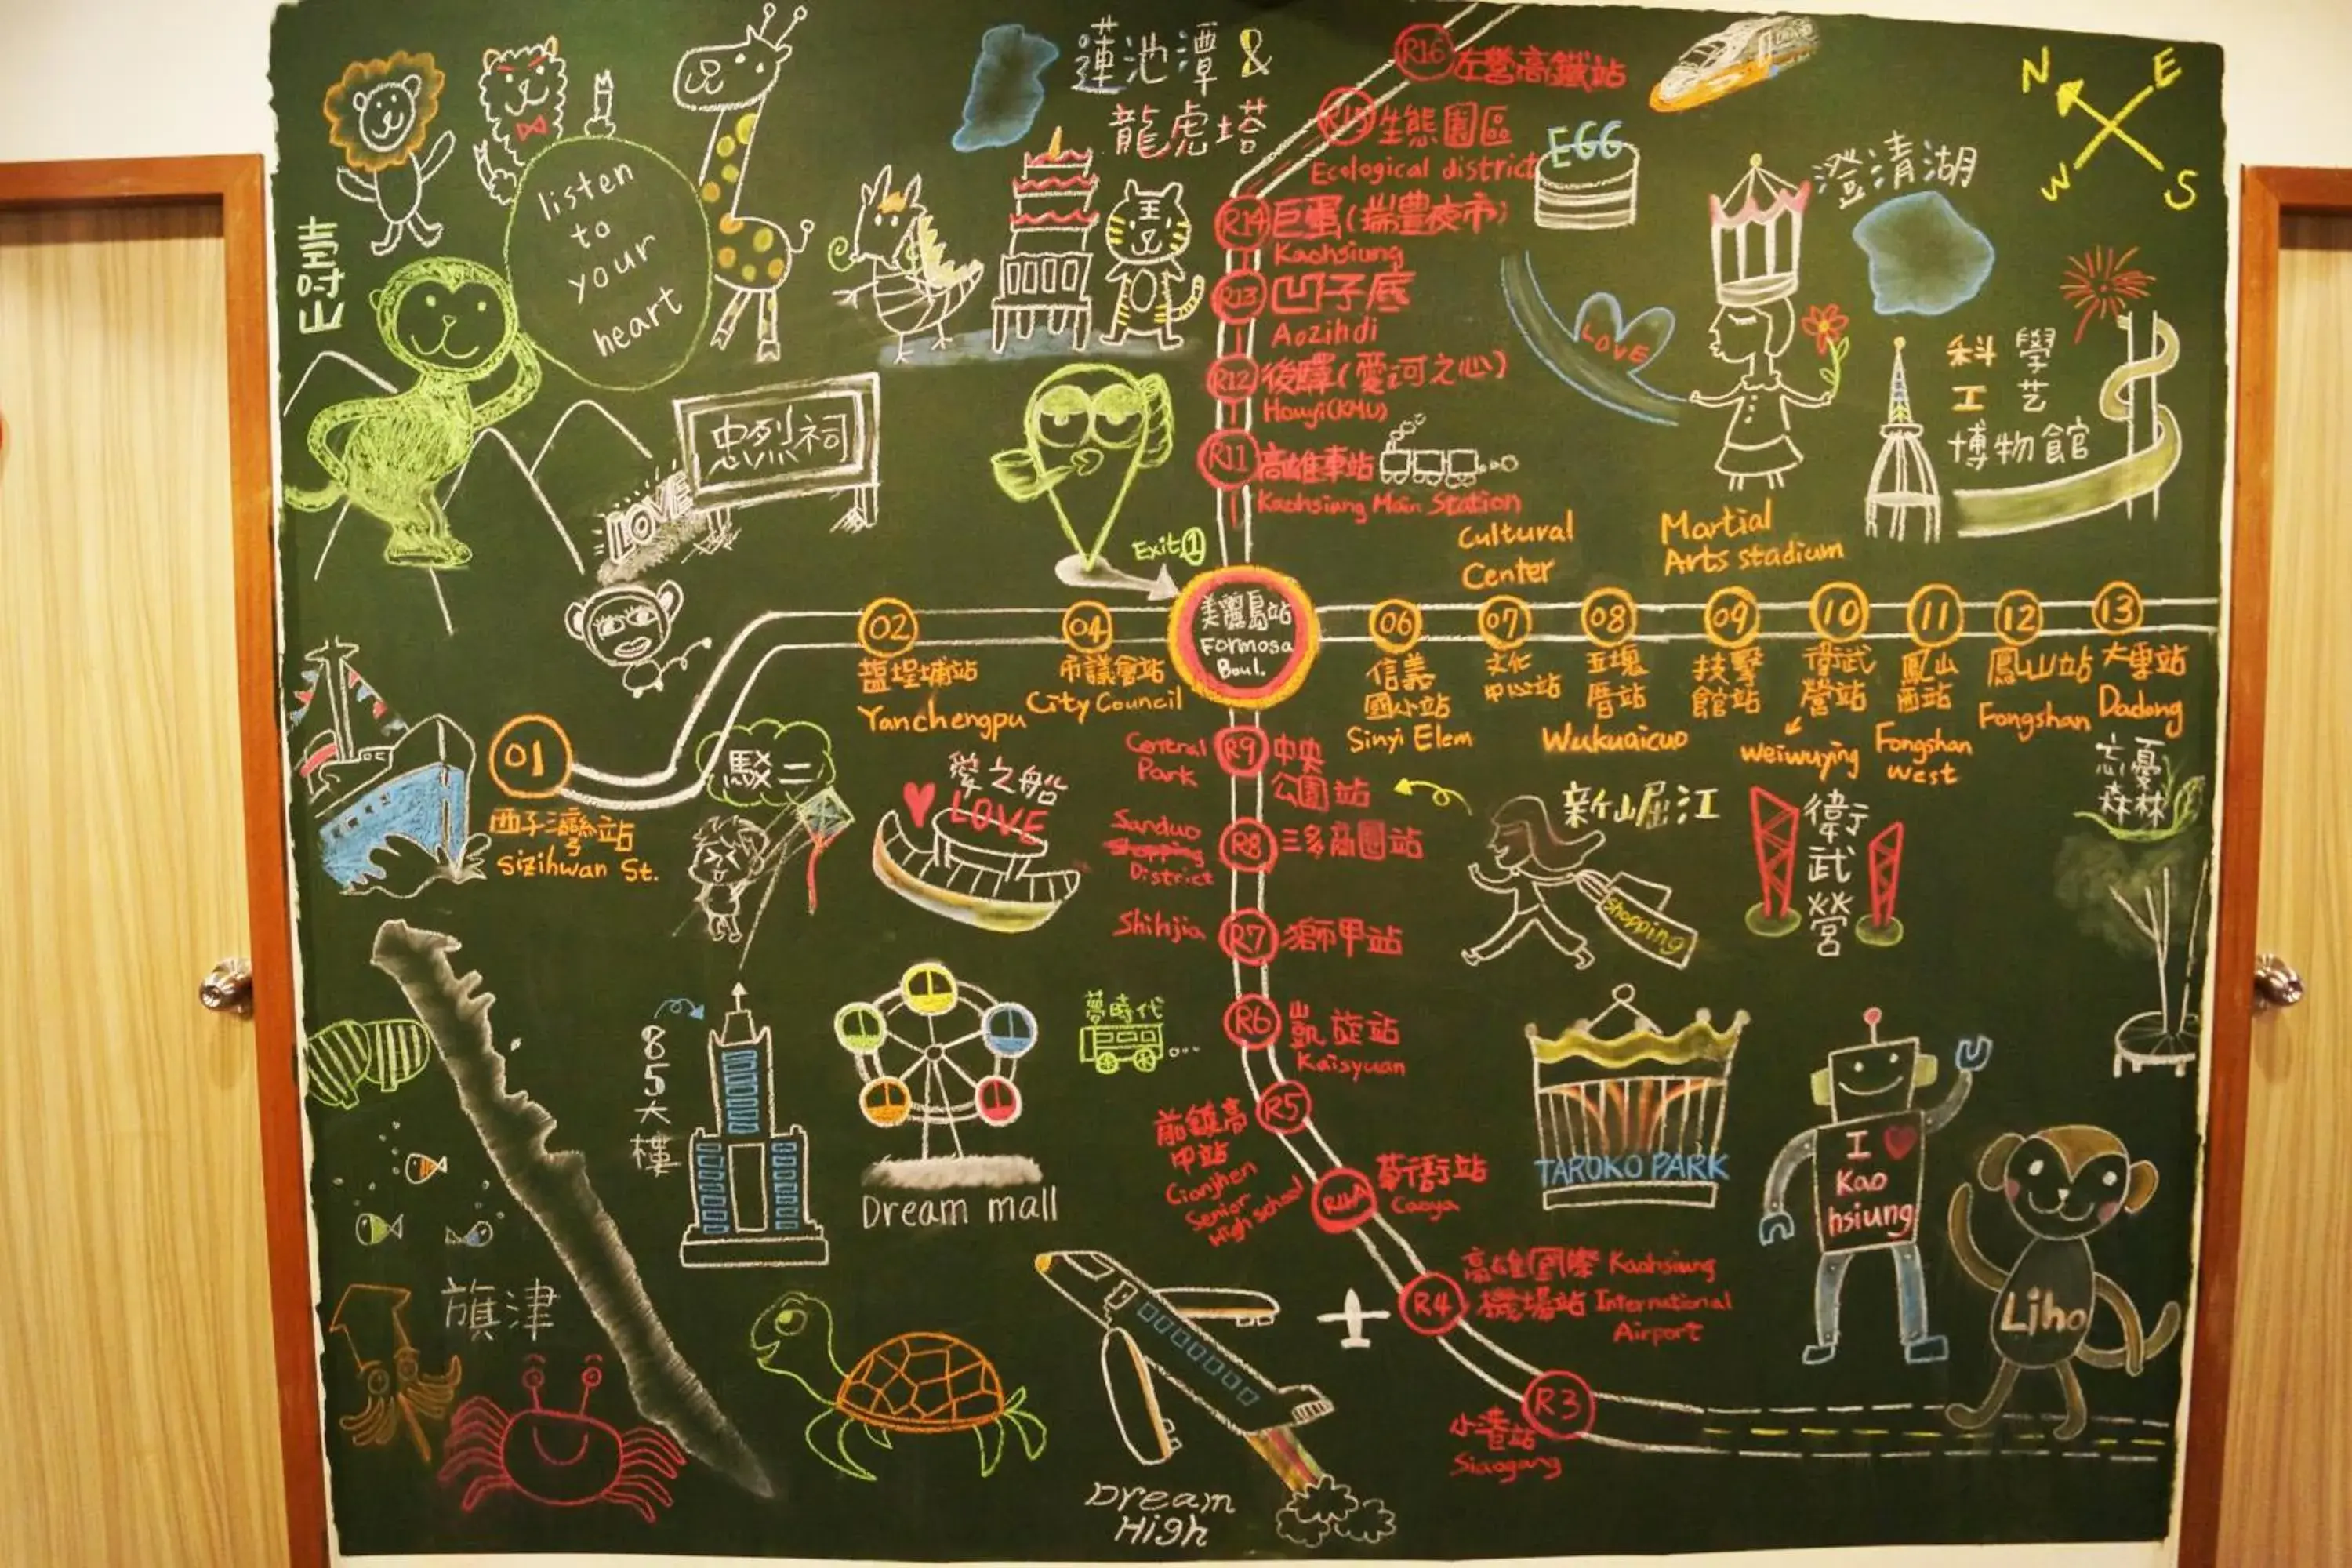 蓮池潭 &
龍虎塔
R16 左營高鐵站
R15 生態園區
Ecological district
EGG
N
E
W
S
澄清湖
listen
to
your
heart
壽山
R14 巨蛋(瑞豐夜市)
Kaohsiung
R13 凹子底
Aozihdi
LOVE
R12 後驛(愛河之心)
Houyi(KMU)
科 學
工 艺
博物館
忠烈祠
LOVE
R11 高雄車站
Kaohsiung Main Station
Exit 1
Cultural
Center
Martial
Arts stadium
美麗島站
Formosa
Boul.
01
西子灣站
Sizihwan St.
02
鹽埕埔站
Yanchengpu
04
市議會站
City Council
06
信義
國小站
Sinyi Elem
07
文化
中心站
08
五塊
厝站
Wukuaicuo
09
技擊
館站
10
衛武
營站
weiwuying
11
鳳山
西站
Fongshan
west
12
鳳山站
Fongshan
13
大東站
Dadong
駁二
愛之船
LOVE
Central
Park
R9 中央
公園站
Sanduo
Shopping
District
R8 三多商圈站
Shihjia
R7 獅甲站
新崛江
Shopping
衛
武
營
忘憂
森林
R6 凱旋站
Kaisyuan
夢時代
85大樓
Dream mall
R5
前鎮高
中站
Cianjhen
Senior
High school
R4A 草衙站
Caoya
TAROKO PARK
I
Kao
hsiung
Liho
R4 高雄國際 Kaohsiung
機場站 International
Airport
R3
小港站
Siaogang
旗津
Dream
High